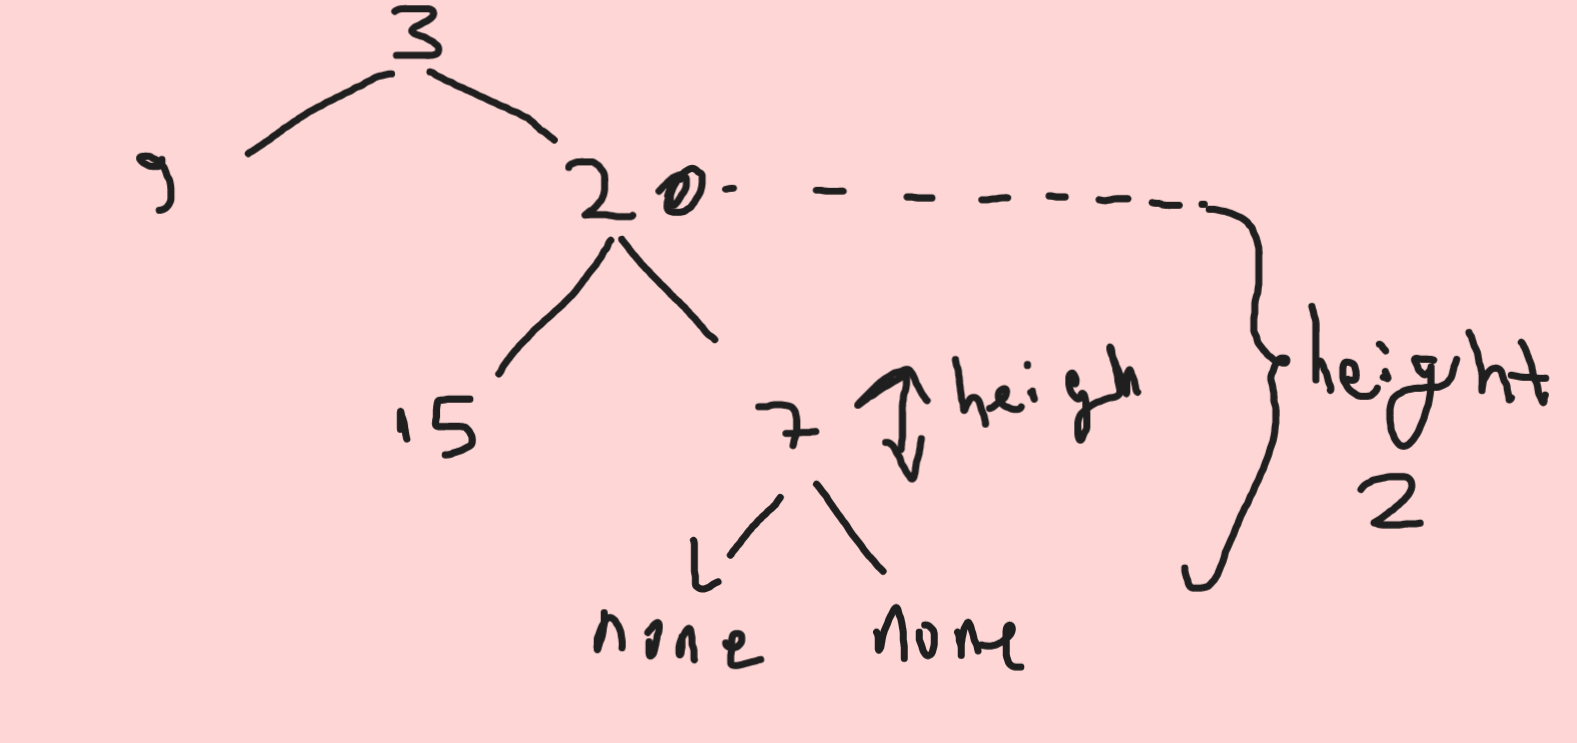 3
9
20
15
7
heigh
height
2
none
none